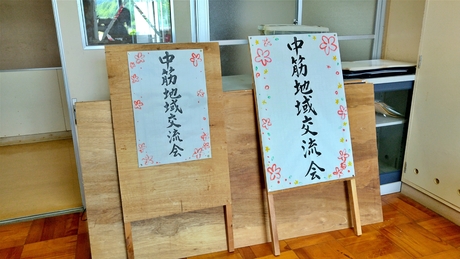 中筋地域交流会
中筋地域交流会